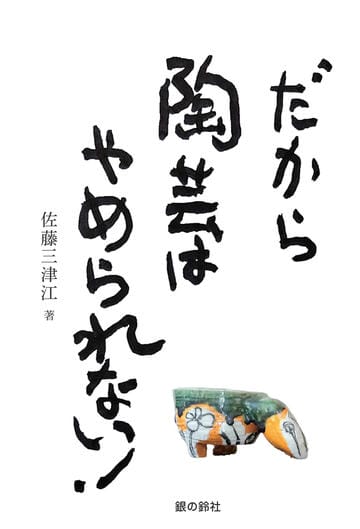 だから
陶芸は
やめられない!
佐藤三津江 著
銀の鈴社